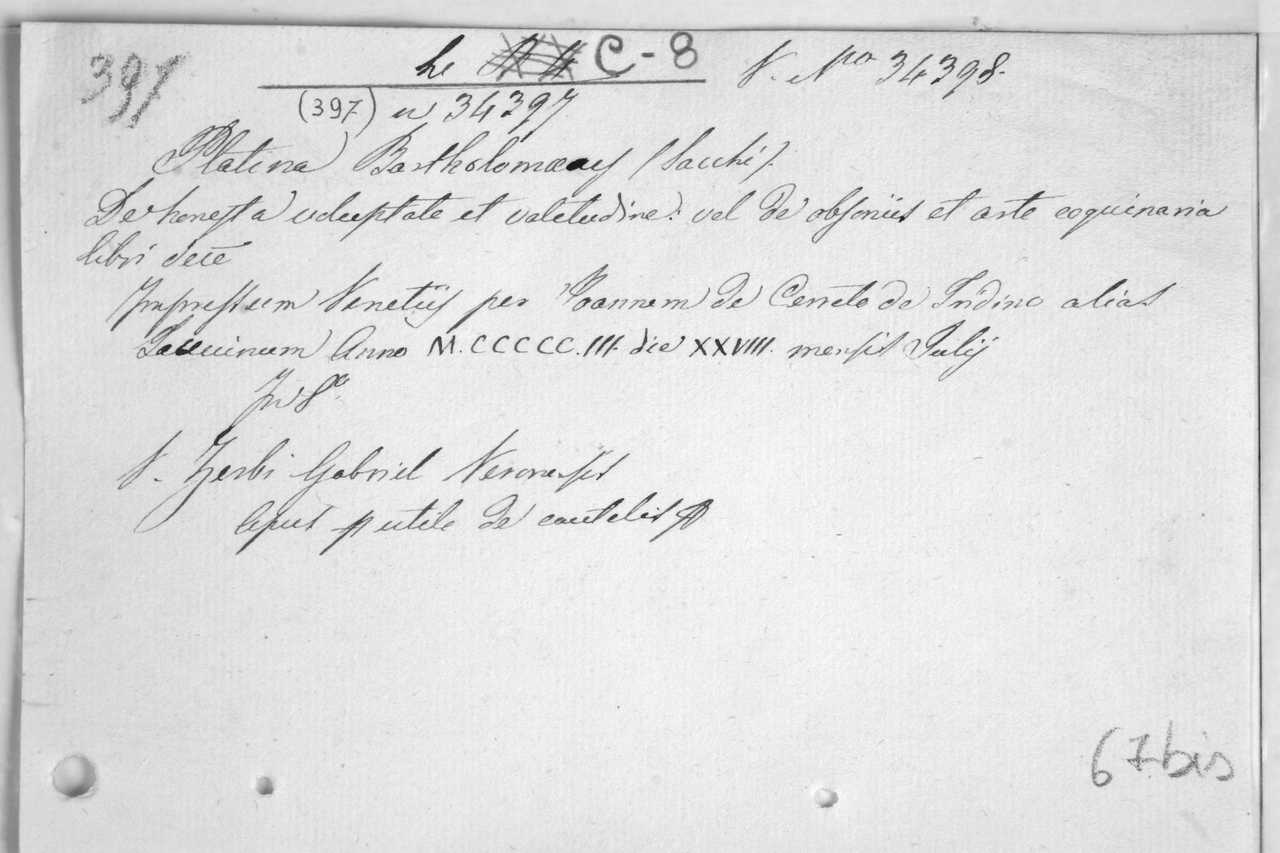 397
he C-8 V. Nro 34398.
(397) n 34397
Platina Bartholomaeus (Sacchi).
De honesta voluptate et valetudine: vel de obsoniis et arte coquinaria
libri decē
Impressum Venetiis per Joannem de Cereto de Tridino alias
Tacuinum Anno M.CCCCC.III. die XXVIII. mensis Julij
In 8º.
V. Zerbi Gabriel Veronensis
Opus utile de cautelis
67 bis